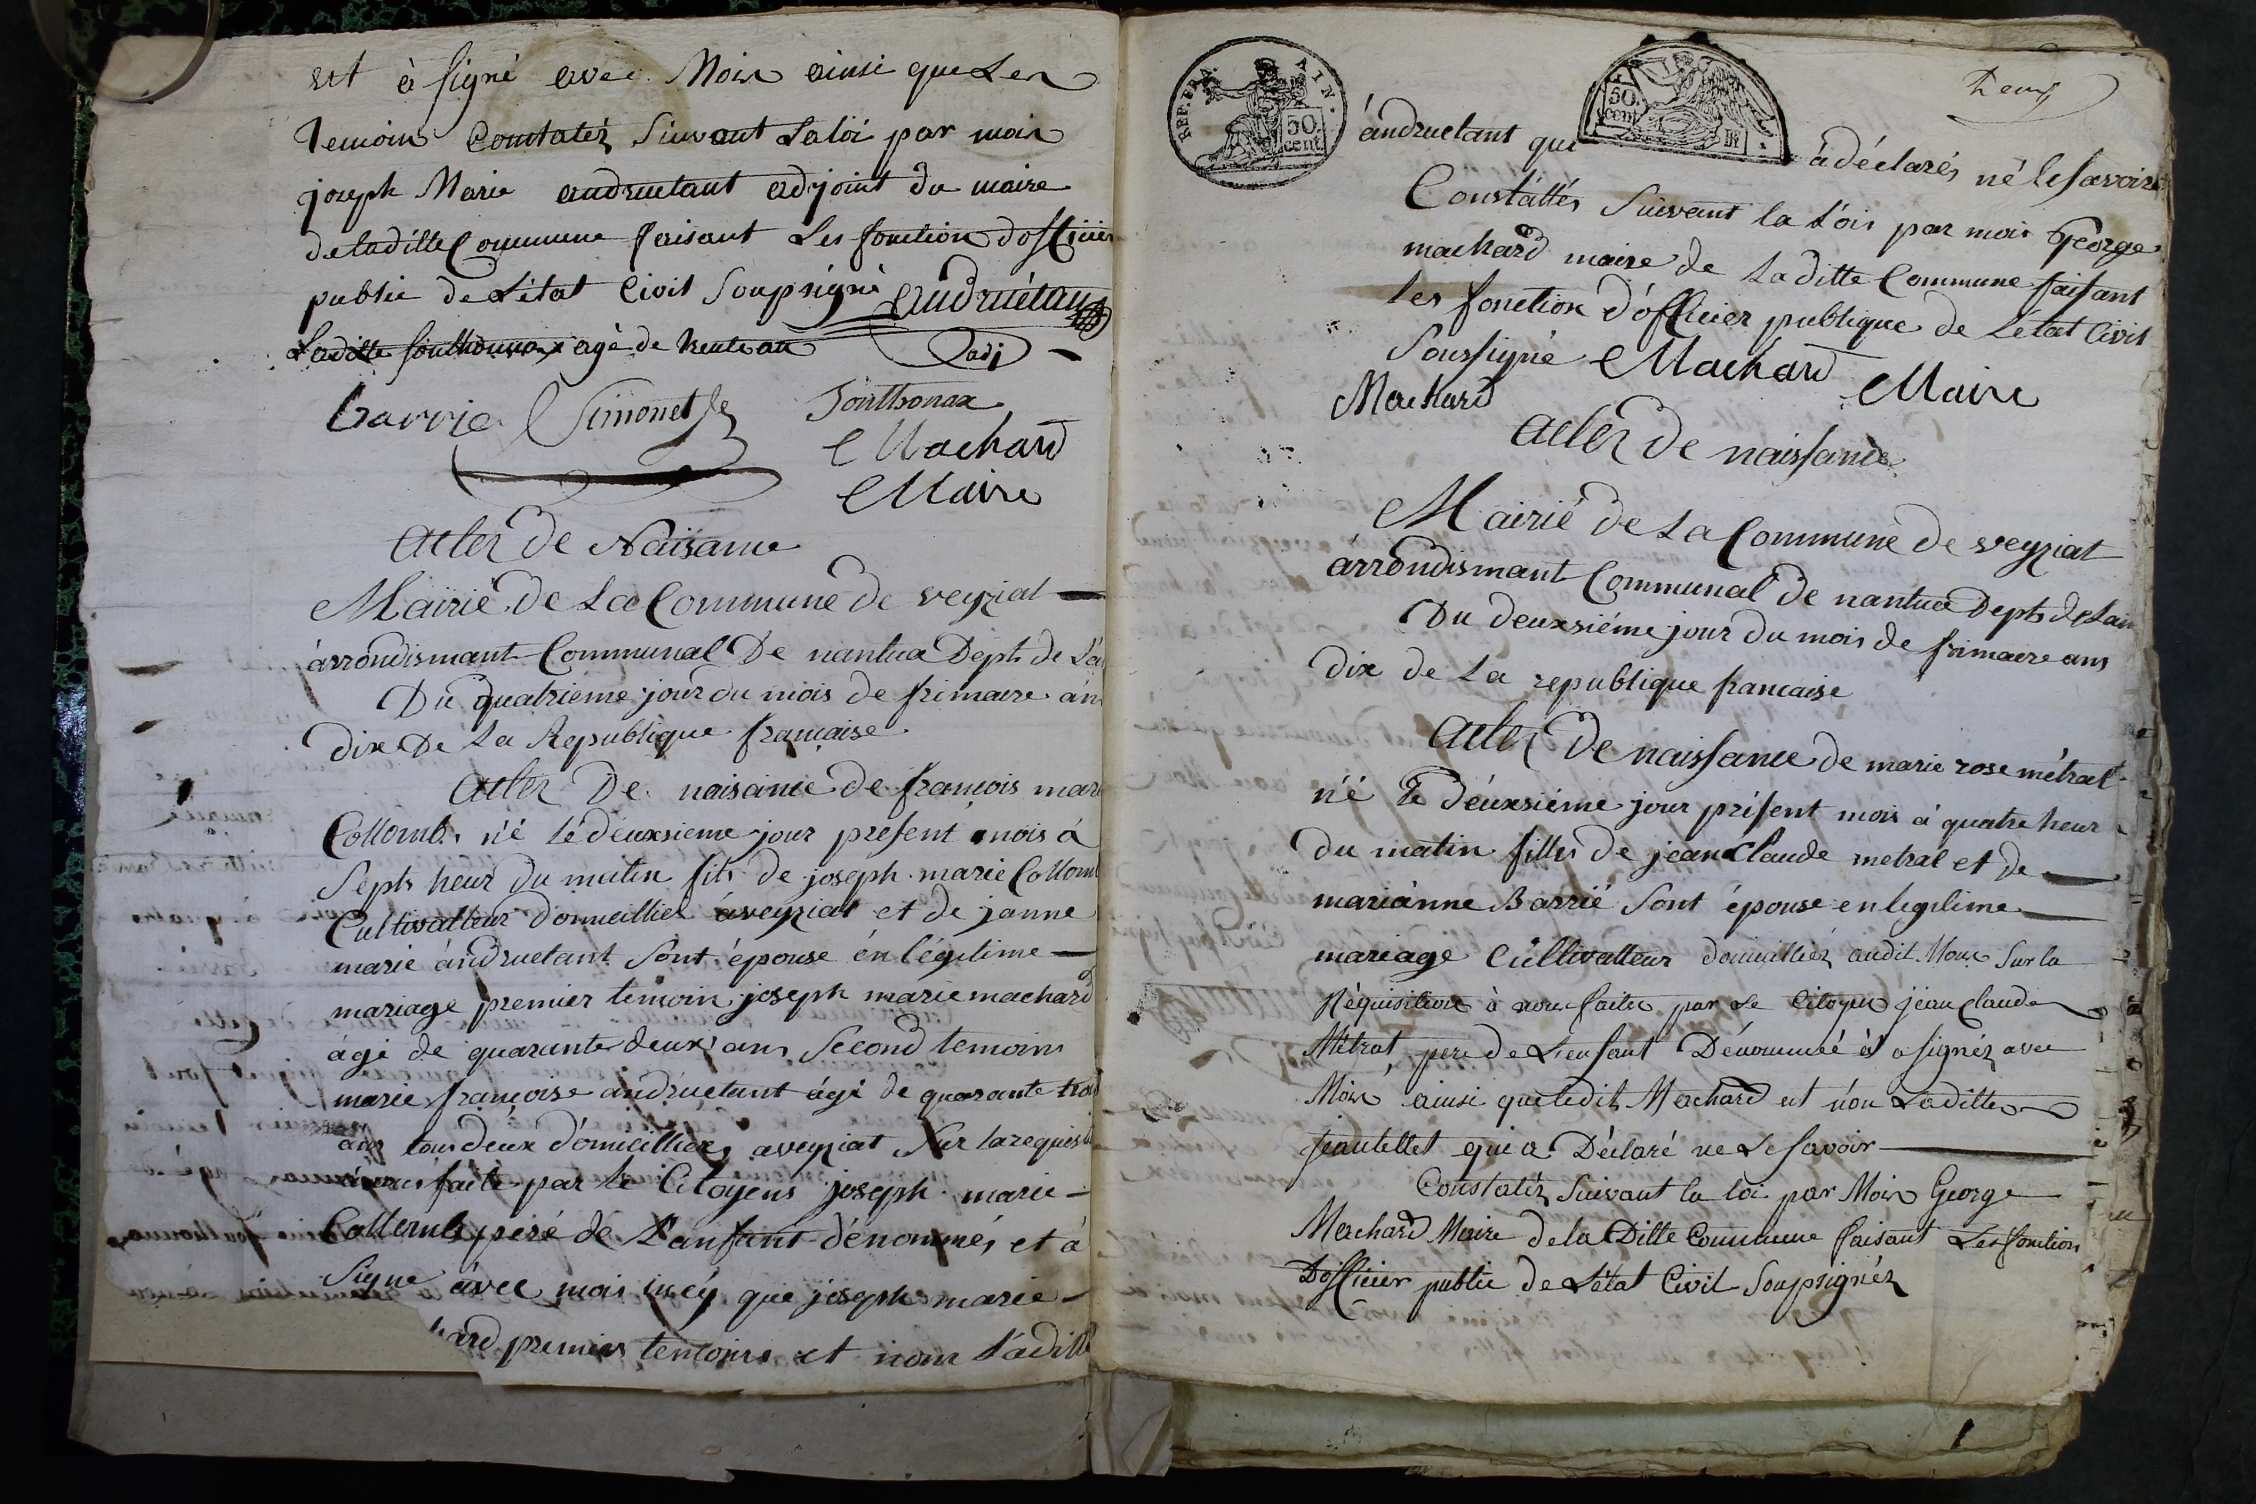 est à signé avec Moix ainsi que Les
Temoin Constatéz Siuvant La loi par moix
joseph Marie andruetant adjoint du maire
de ladille Commune faisant Les fonction dofficier
public de L'état Civil Soupsigné andruétan
Ladille Sonthonnax agé de trente an adj
barrie Simonet Sonthonax
Machard
Maire
acter de Naisance
Mairié de La Commune de veyziat
arrondismant Communal De nantua Depts de L'a
Du quatrieme jour du mois de frimaire an
dix De La Republique française
acter De naisance de françois mari
Collomb né le deuxsieme jour present mois à
Septs heur du matin fils de joseph marie Collomb
Cultivatteur domeillier à veyziat et de janne
marie ándruetant Sont épouse én légitime
mariage premier temoin joseph marie machard
ágé de quarante deux ans Second temoin
marie françoise andruetant ágé de quarante trois
ans tous deux d'omeillier aveyziat Sur la requisi
faite par le Citoyens joseph marie
Collomb peré de L'anfant dénommés et à
Signe ávec mois incy que joseph marie
hard premier temoins et nom L'adille
REP. FRA. 50 cent. AIN.
50 cent
Deux
ándruetant qui à déclarés né le savoir
Constattés Suivant la Lois par mois George
machard maire de Laditte Commune faisant
les fonction d'officier publique de L'état Civil
Soussigné Machard Maire
Machard
acter de naissance
Mairié de La Commune de veyziat
árrondismant Communal de nantua Depts de Lain
Du deuxsiéme jour du mois de frimaire ans
dix de La republique francaise
acter De naissance de marie rose métral
né le déuxsiéme jour présent mois à quatre heur
du matin filles de jean Claude metral et de
mariánne Barrié Sont épouse en legitime
mariage Cultivatteur domicilliéz audit Moux Sur la
Réquisition à nous faite par Le Citoyen jean Claude
Métrat pere de L'enfant Dénommé et a signéz avec
Moix ainsi que ledit Machard et non Ladille
Jeantellet qui a Déclaré ne Le savoir
Constatéz Suivant la loi par Moix George
Machard Maire de la Ditte Commune faisant Les fonction
D'officier public de L'état Civil Soupsignéz